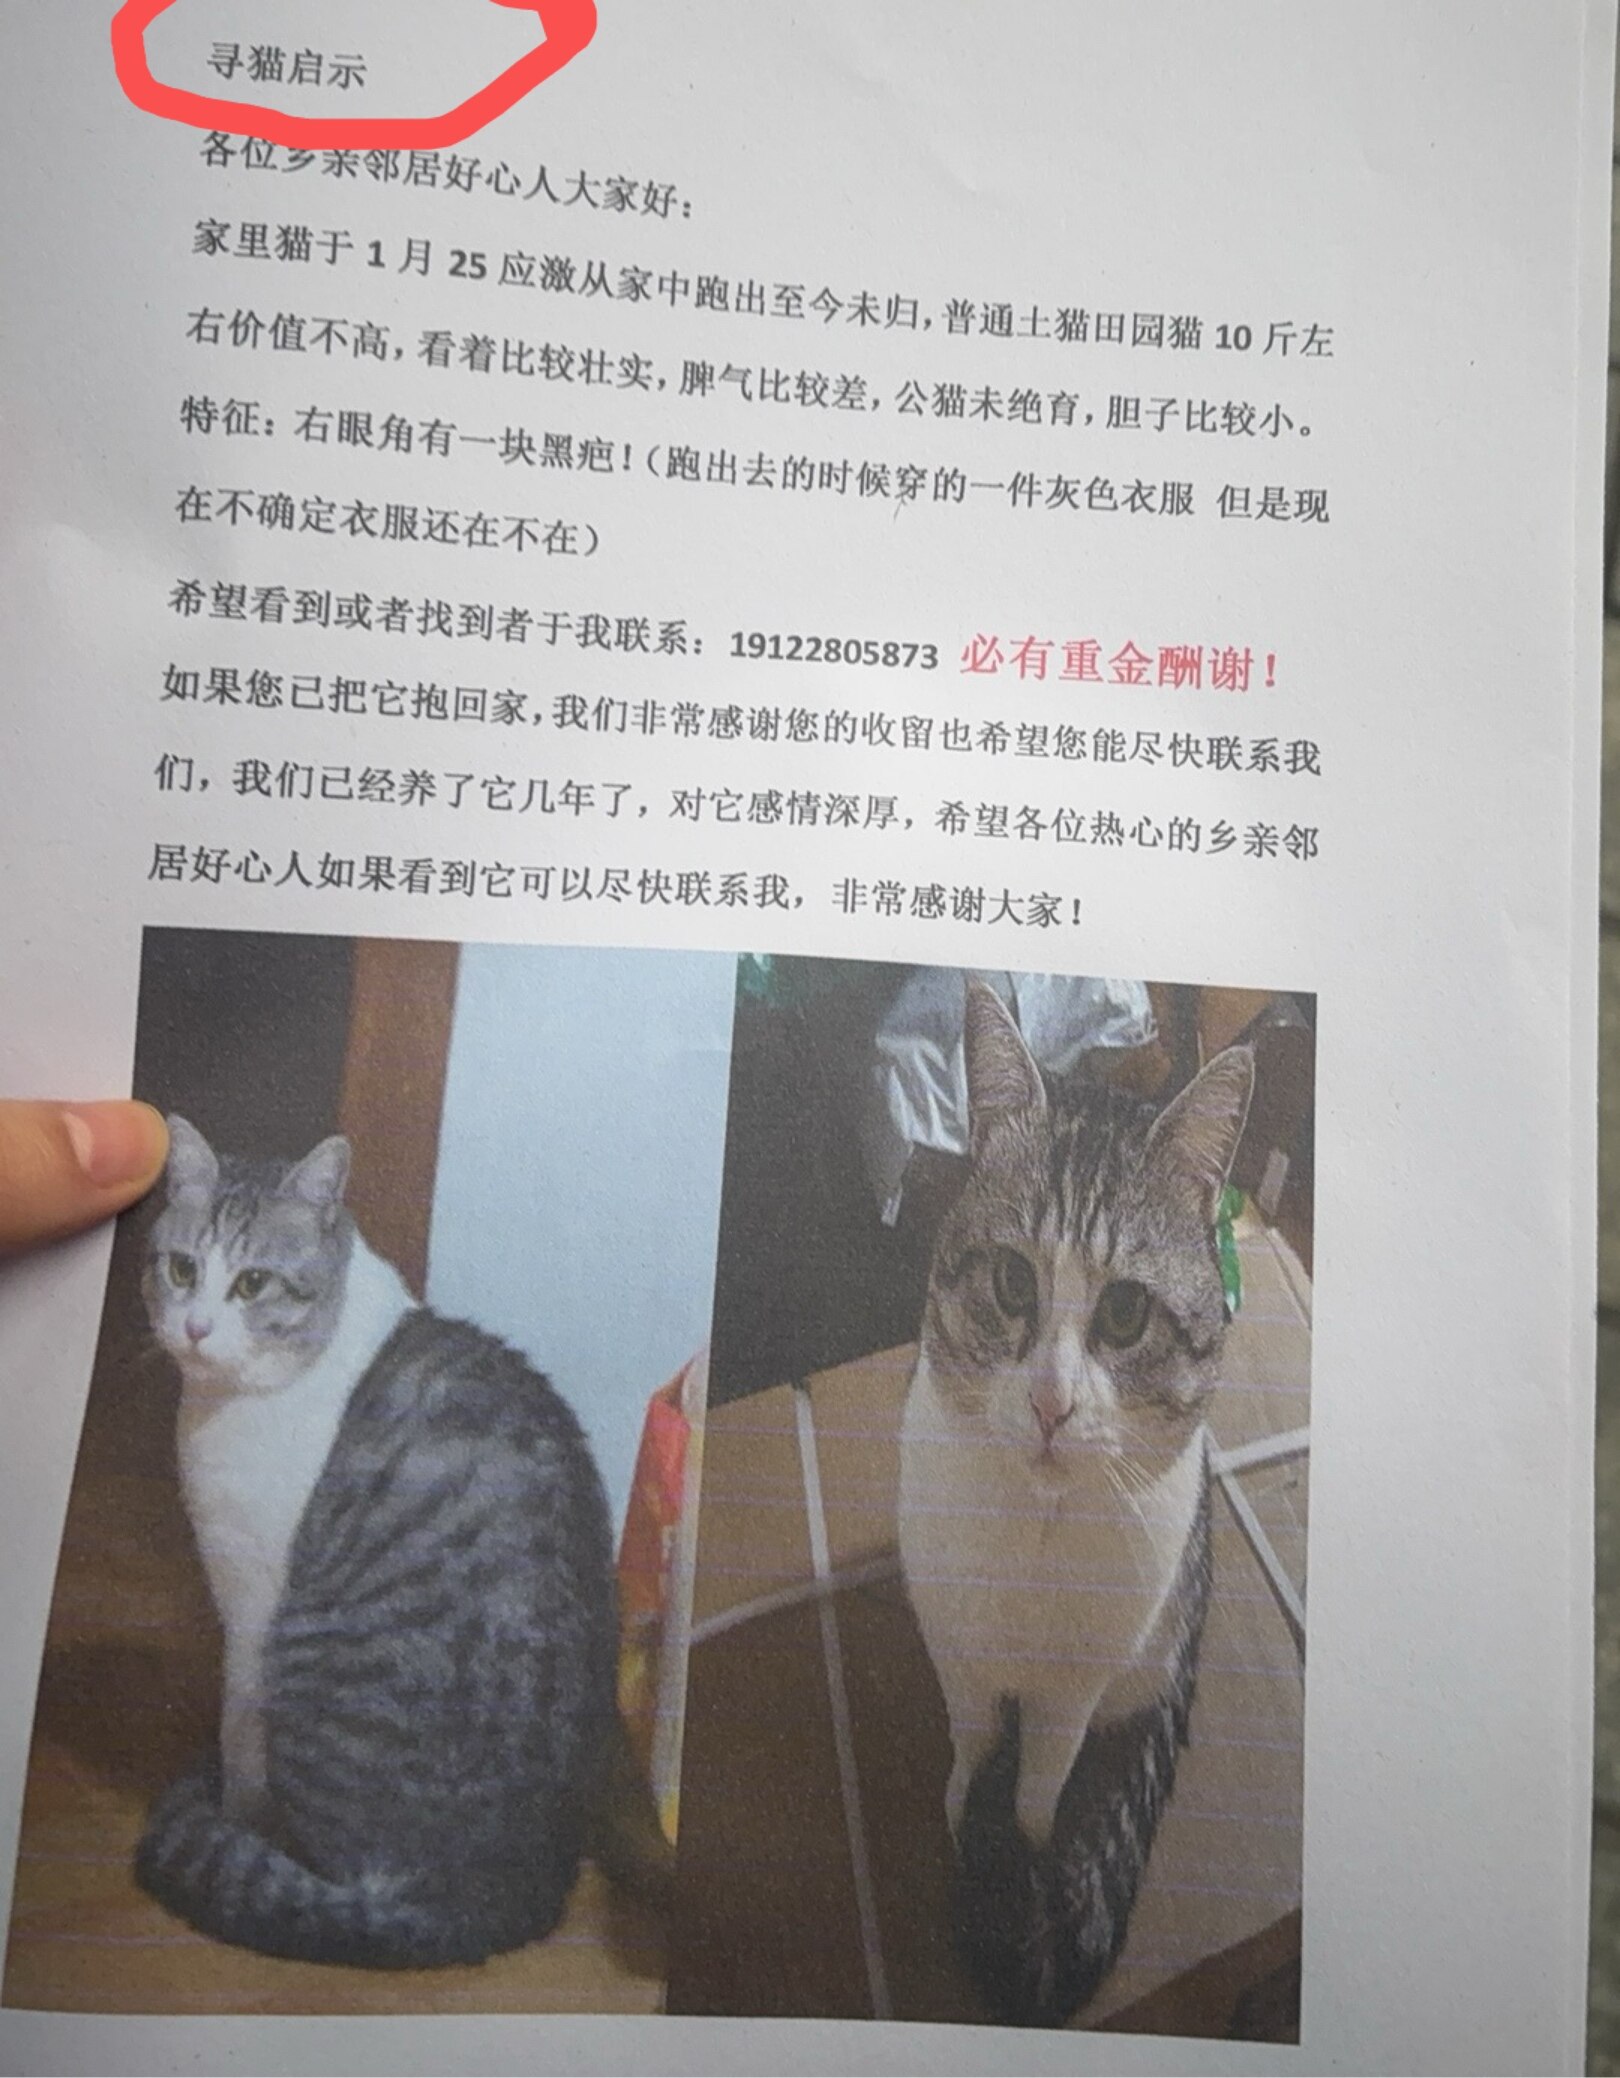 寻猫启示
各位乡亲邻居好心人大家好：
家里猫于 1 月 25 应激从家中跑出至今未归，普通土猫田园猫 10 斤左
右价值不高，看着比较壮实，脾气比较差，公猫未绝育，胆子比较小。
特征：右眼角有一块黑疤！（跑出去的时候穿的一件灰色衣服 但是现
在不确定衣服还在不在）
希望看到或者找到者于我联系：19122805873 必有重金酬谢！
如果您已把它抱回家，我们非常感谢您的收留也希望您能尽快联系我
们，我们已经养了它几年了，对它感情深厚，希望各位热心的乡亲邻
居好心人如果看到它可以尽快联系我，非常感谢大家！